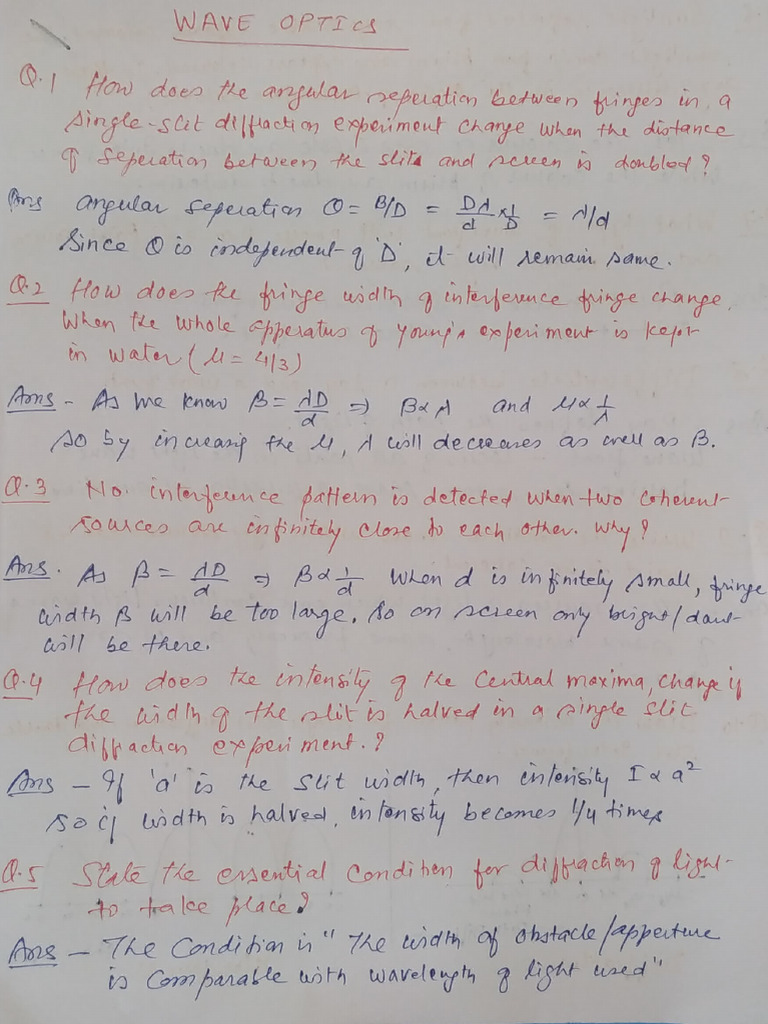 WAVE OPTICS
Q.1 How does the angular seperation between fringes in a
single-slit diffraction experiment change when the distance
of seperation between the slits and screen is doubled?
Ans angular seperation θ = β/D = Dλ/d × 1/D = λ/d
Since θ is independent of 'D', it will remain same.
Q.2 How does the fringe width of interference fringe change,
When the whole apperatus of young's experiment is kept
in water (μ = 4/3)
Ans - As we know β = λD/d ⇒ β ∝ λ and μ ∝ 1/λ
so by increasing the μ, λ will decreases as well as β.
Q.3 No. interference pattern is detected when two coherent
sources are infinitely close to each other. Why?
Ans. As β = λD/d ⇒ β ∝ 1/d When d is infinitely small, fringe
width β will be too large. So on screen only bright/dark
will be there.
Q.4 How does the intensity of the Central maxima, change if
the width of the slit is halved in a single slit
diffraction experiment.?
Ans - If 'a' is the slit width, then intensity I ∝ a²
so if width is halved, intensity becomes 1/4 times
Q.5 State the essential condition for diffraction of light
to take place?
Ans - The Condition is "The width of obstacle/apperture
is comparable with wavelength of light used"